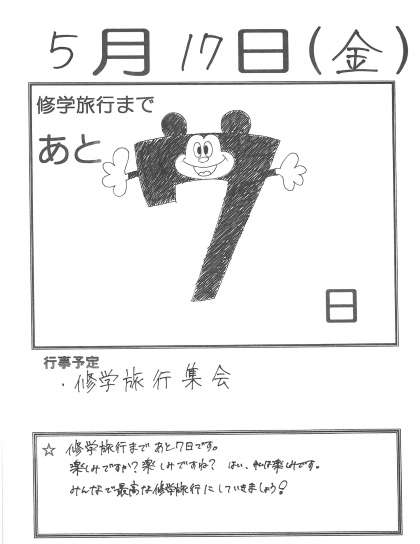 5月17日(金)
修学旅行まで
あと
7
日
行事予定
・修学旅行集会
☆ 修学旅行まで あと7日です。
楽しみですか？楽しみですね？ はい、私は楽しみです。
みんなで最高な修学旅行にしていきましょう！